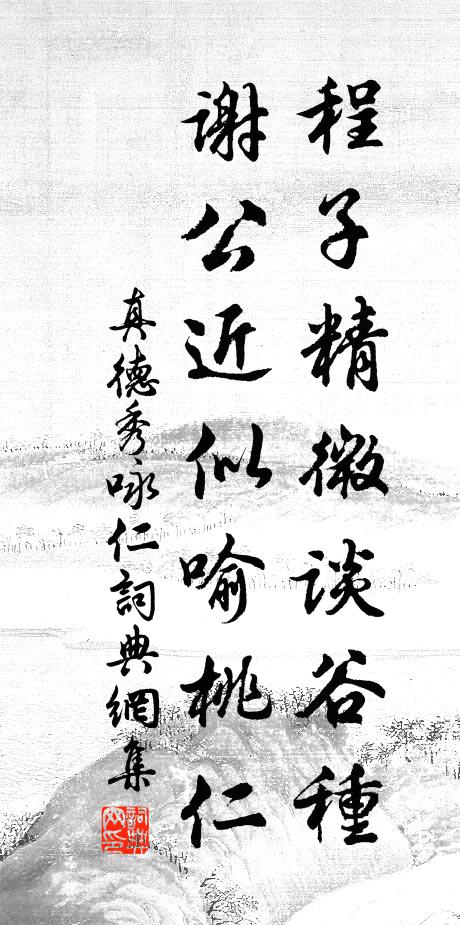 程子精微談谷種
謝公近似喻桃仁
真德秀咏仁詞典網集